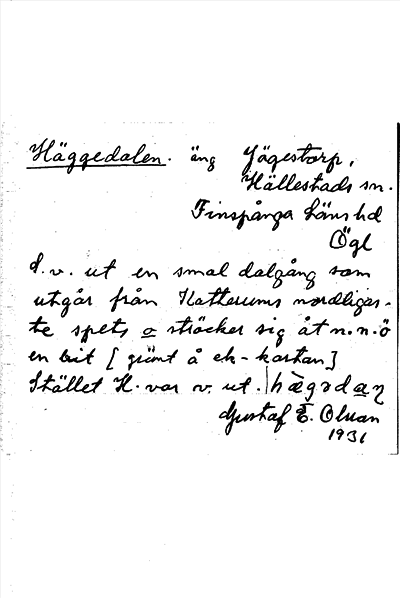 Häggedalen. äng Jägestorp,
Hällestads sn.
Finspånga läns hd
Ögl
d.v. ut en smal dalgång som
utgår från Katterums nordligas-
te spets o sträcker sig åt n.n.ö
en bit [grönt å ek-kartan]
Stället H. var v. ut.
Gustaf E. Olsan
1931